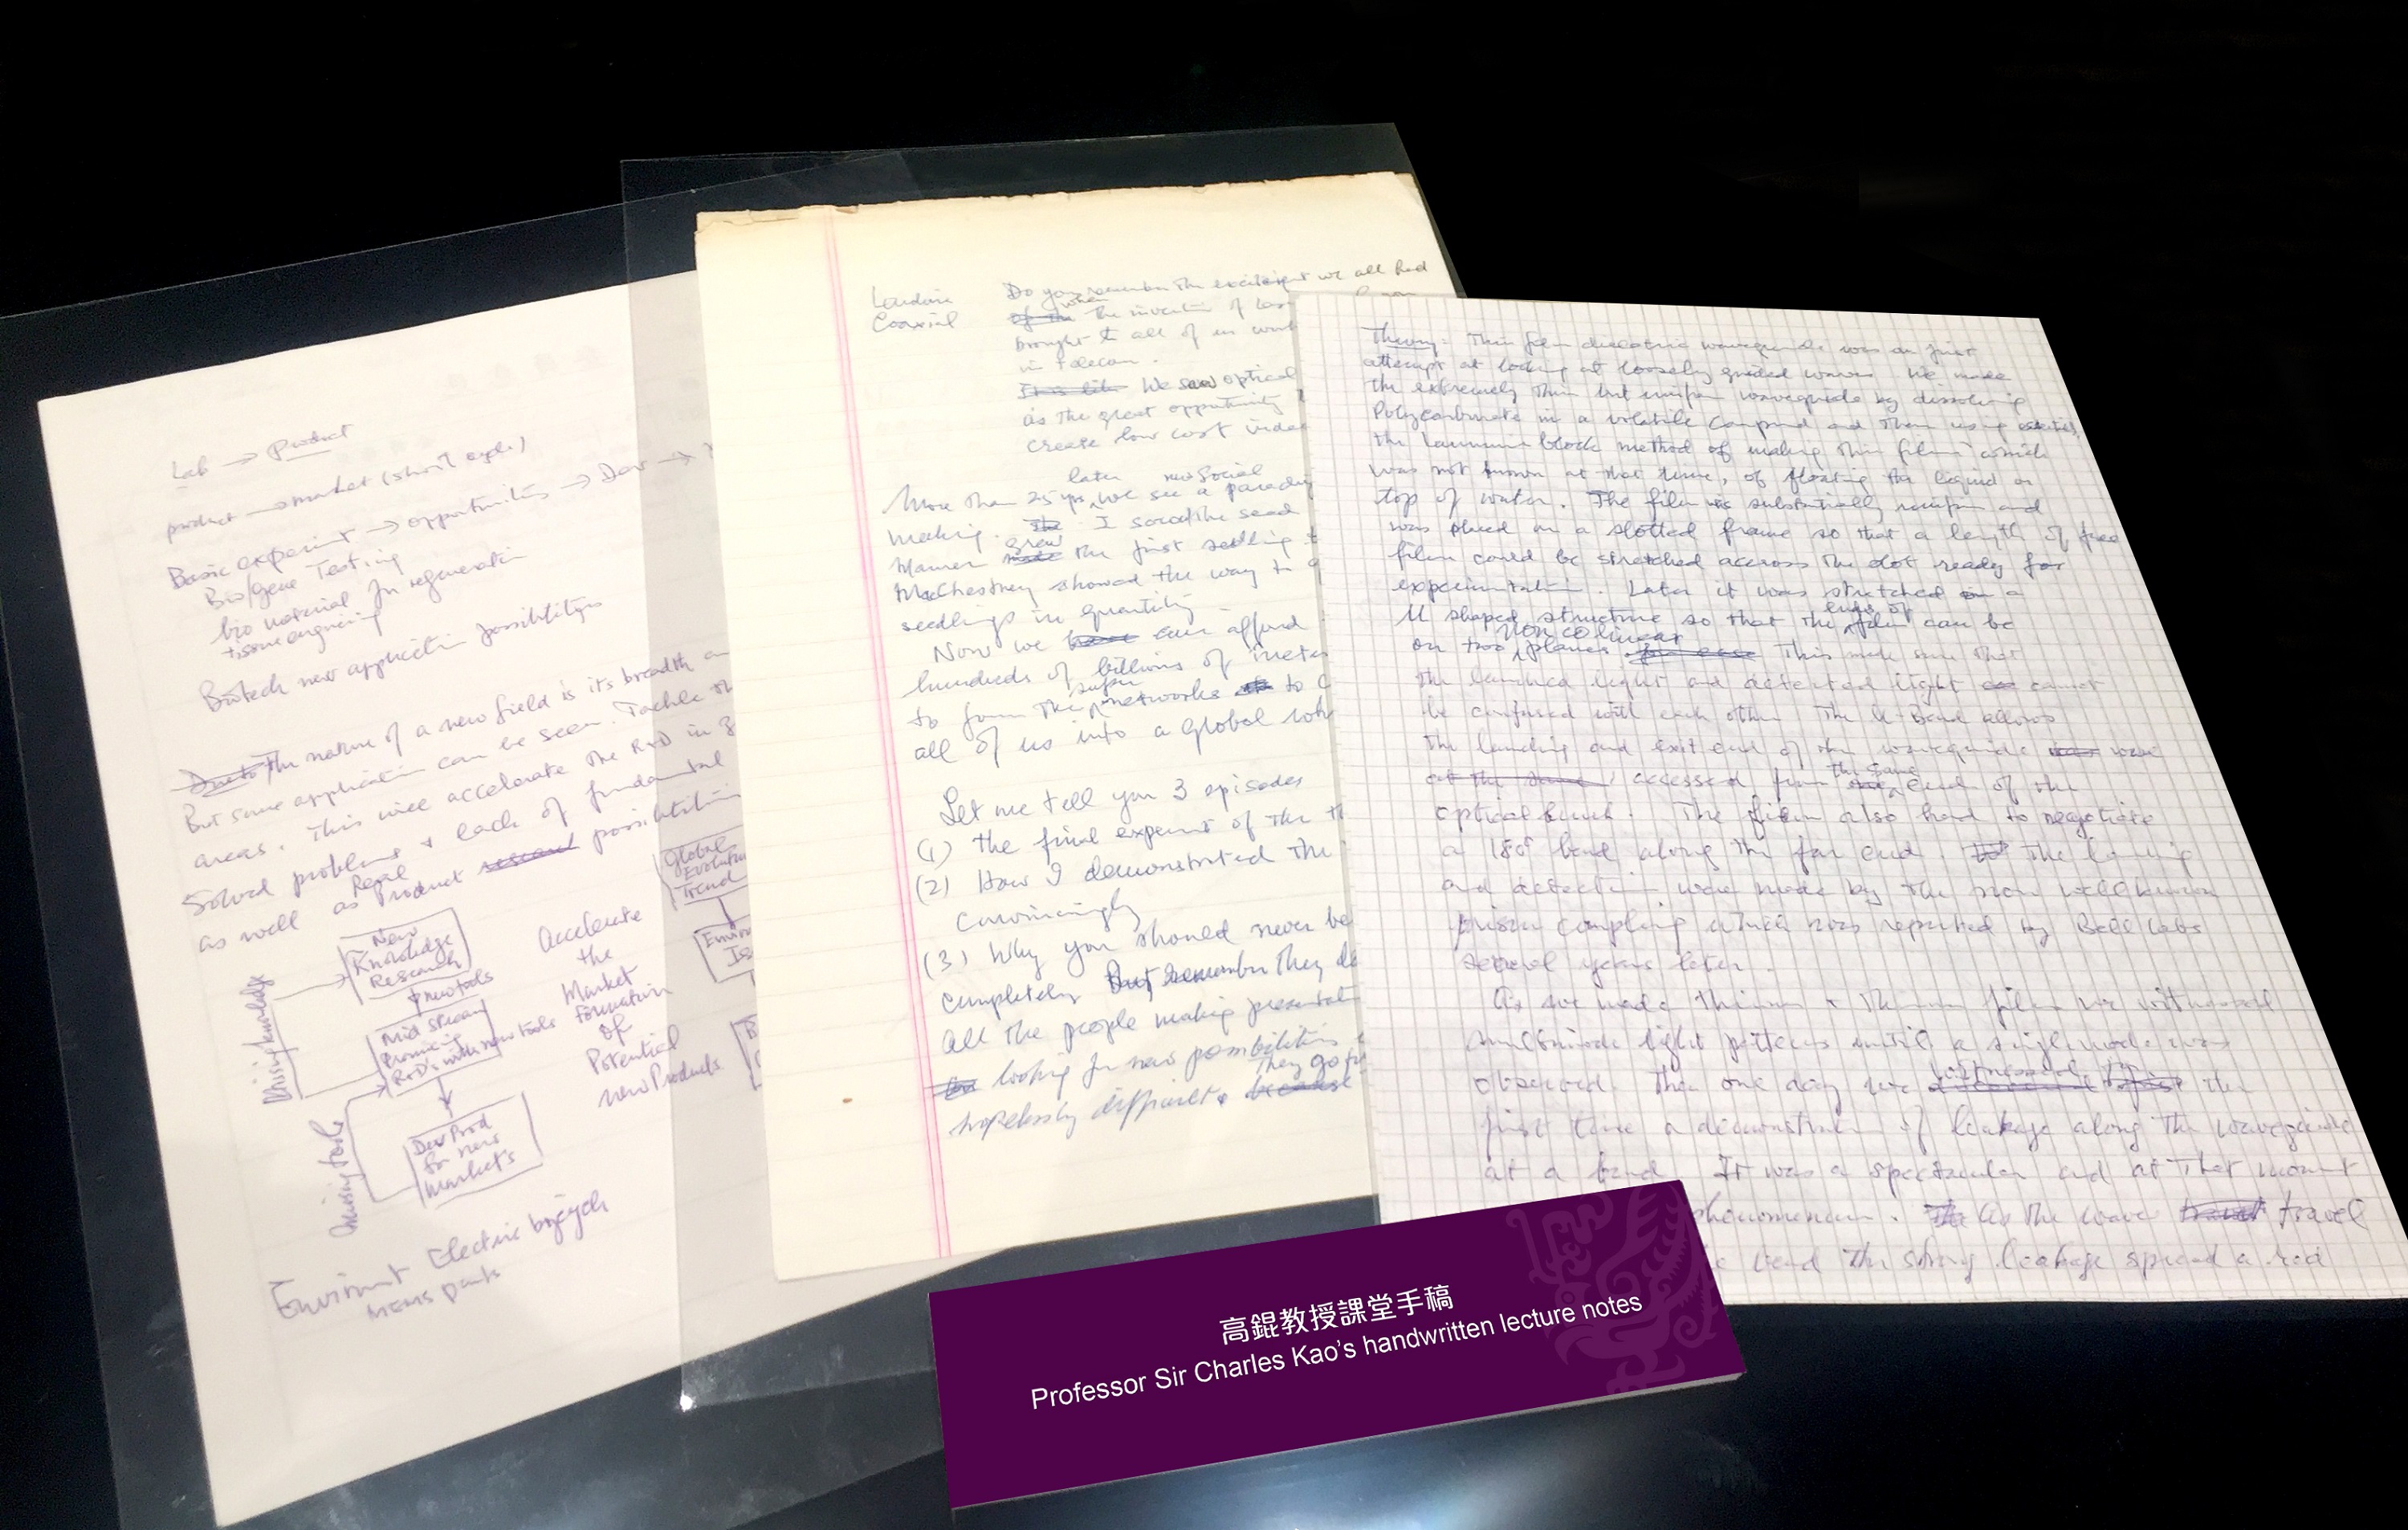 Lab → Product
product → market (short cycle)
Basic experiment → opportunities → Dev →
Bio/gene Testing
bio material for regeneration
tissue engineering
Biotech new application possibilities
Due to The nature of a new field is its breadth
But some application can be seen. Tackle
areas. This will accelerate the R&D in
Solved problems & lack of fundamental
as well as Real Product research possibilities
New
Knowledge
Research
new tools
Mid stream
Promising
R&D's with new tools
Dev Prod
for new
markets
Missing knowledge
Missing tools
Accelerate
the
Market
formation
of
Potential
new Products
Global
Evolution
Trend
Environ
Electric bicycle
MEMS parts
Coaxial
Do you remember the excitement we all had
of the when The invention of
brought to all of us
in telecom.
It is like We saw optical
as the great opportunity
create low cost
More than 25 yrs later, we see a new social
making. The I sowed the seed
Maurer made grew the first seedling
MacChesney showed the way to
seedlings in quantity
Now we have can afford
hundreds of billions of
to form the super networks to
all of us into a global
Let me tell you 3 episodes
(1) the final experiment of the
(2) How I demonstrated the
convincingly
(3) Why you should never be
completely But remember they
All the people making
looking for new possibilities
hopelessly difficult They go because
Theory: Thin film dielectric waveguide was our first
attempt at looking at loosely guided waves. We made
the extremely thin but uniform waveguide by dissolving
Polycarbonate in a volatile compound and then using
the block method of making thin film which
was not known at that time, of floating the liquid on
top of water. The film was substantially uniform and
was placed on a slotted frame so that a length of free
film could be stretched accross the slot ready for
experimentation. Later it was stretched on a
U shaped structure so that the ends of film can be
on two non colinear planes. This made sure that
the launched light and detected light cannot
be confused with each other. The U-Bend allows
the launching and exit end of the waveguide were
at the same accessed from the same end of the
optical bench. The film also had to negotiate
a 180° bend along the far end. The launching
and detection were made by the now well known
prism coupling which was reported by Bell Labs
several years later.
As we made thinner & thinner film we witnessed
multimode light pattern until a single mode was
observed. Then one day we witnessed for the
first time a demonstration of leakage along the waveguide
at a bend. It was a spectacular and at that moment
phenomenon. As the wave travel travel
bend the strong leakage spread a red
高錕教授課堂手稿
Professor Sir Charles Kao's handwritten lecture notes